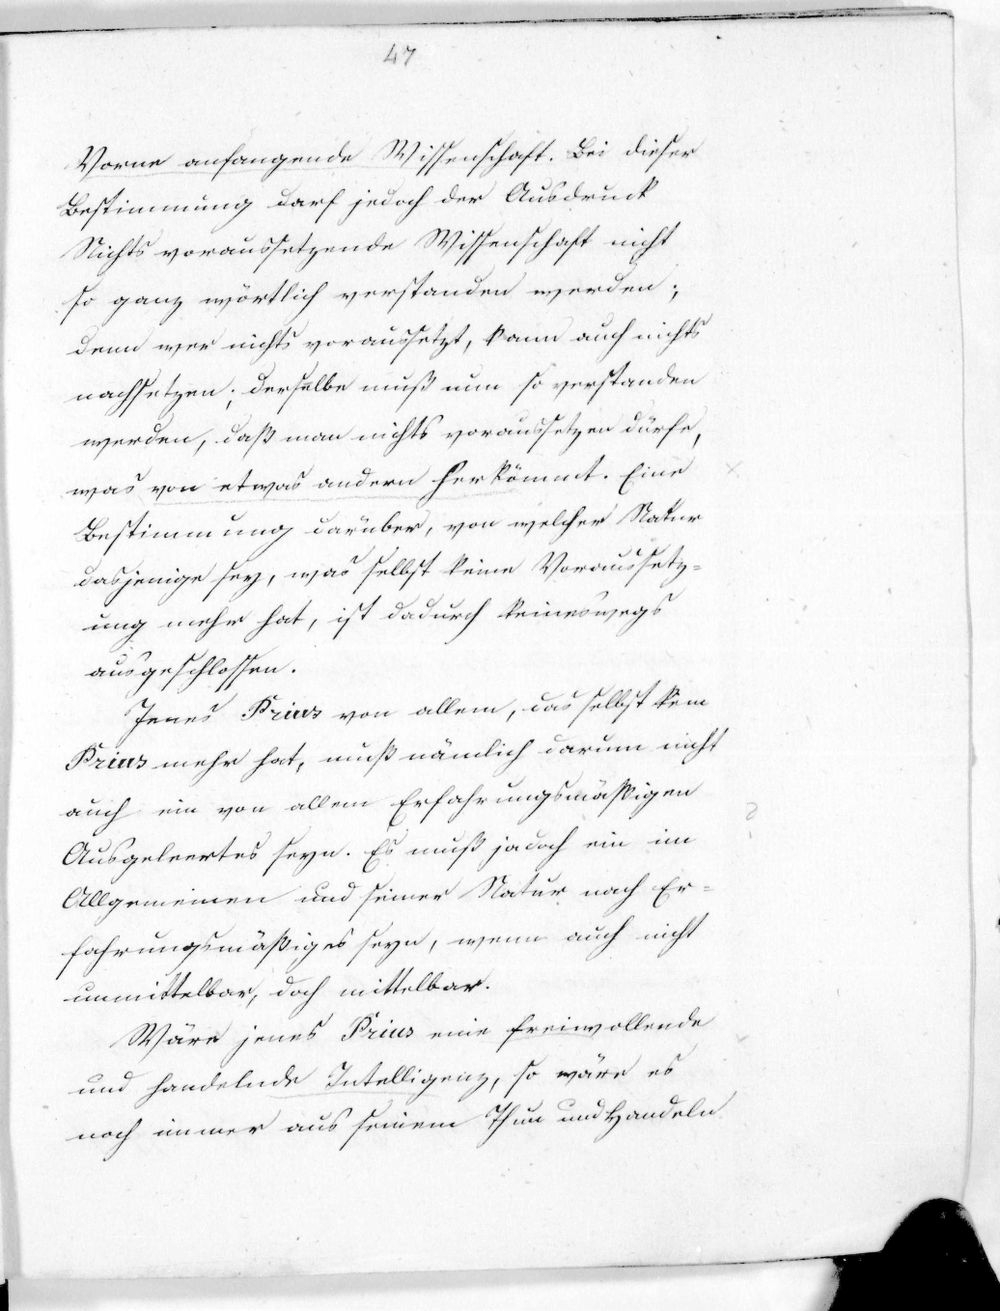 47
Vorne anfangende Wissenschaft. Bei dieser
Bestimmung darf jedoch der Ausdruck
Nichts voraussetzende Wissenschaft nicht
so ganz wörtlich verstanden werden;
denn wer nichts voraussetzt, kann auch nichts
nachsetzen; derselbe muß nun so verstanden
werden, daß man nichts voraussetzen dürfe,
was von etwas andern herkömmt. Eine ×
Bestimmung darüber, von welcher Natur
dasjenige sey, was selbst keine Voraussetz=
ung mehr hat, ist dadurch keineswegs
ausgeschlossen.
Jenes Prius von allem, das selbst kein
Prius mehr hat, muß nämlich darum nicht
auch ein von allem Erfahrungsmäßigen
Ausgeleertes seyn. Es muß jedoch ein im
Allgemeinen und seiner Natur nach Er=
fahrungsmäßiges seyn, wenn auch nicht
unmittelbar, doch mittelbar.
Wäre jenes Prius eine freiwollende
und handelnde Intelligenz, so wäre es
noch immer aus seinem Thun und Handeln